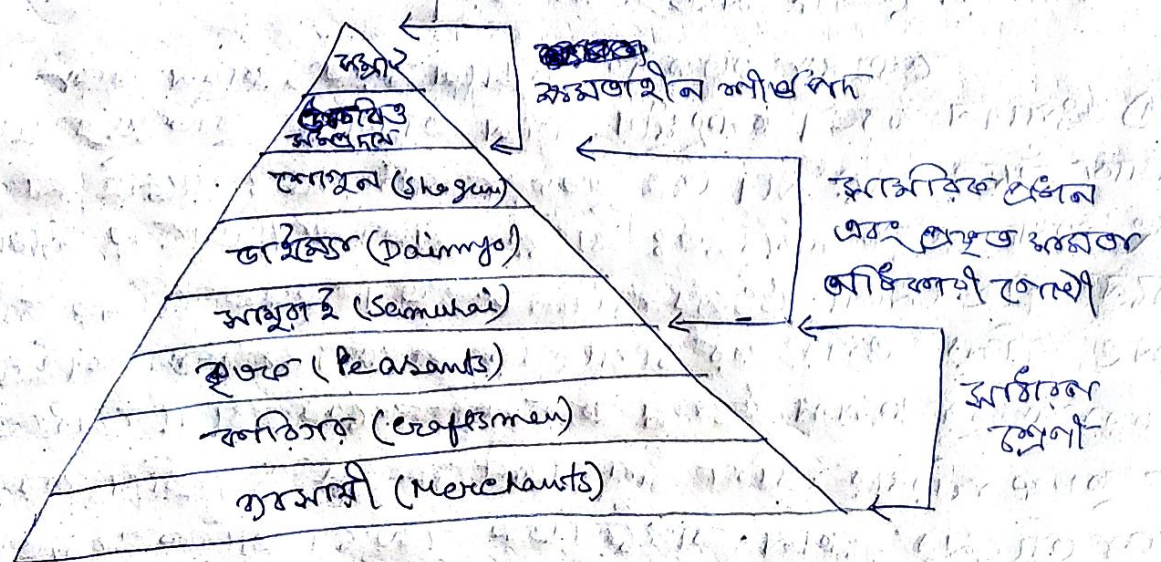 সম্রাট
সম্প্রদায়
শোগুন (Shogun)
ডাইম্যো (Daimyo)
সামুরাই (Samurai)
কৃষক (Peasants)
কারিগর (Craftsmen)
ব্যবসায়ী (Merchants)
ক্ষমতাহীন শীর্ষপদ
সামরিক প্রধান
এবং প্রকৃত ক্ষমতা
অধিকারী গোষ্ঠী
সাধারণ
শ্রেণী